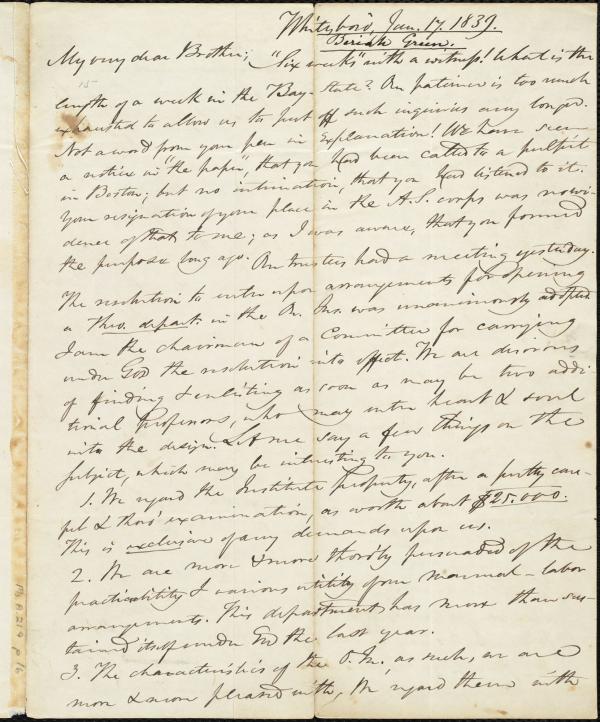 Whitesboro, Jan. 17. 1839.
Beriah Green.
My very dear Brother; "Six weeks" with a witness! What is the
length of a week in the Bay-State? Our patience is too much
exhausted to allow us to put off such inquiries any longer.
Not a word from your pen in explanation! We have seen
a notice in "the paper", that you had been called to a pulpit
in Boston; but no intimation, that you had listened to it.
Your resignation of your place in the A.S. corps was no evi-
dence of that to me; as I was aware, that you formed
the purpose long ago. Our trustees had a meeting yesterday.
The resolution to enter upon arrangements for opening
a Theo. depart. in the On. Ins. was unanimously adopted.
I am the chairman of a Committee for carrying
under God the resolution into effect. We are desirous
of finding & enlisting as soon as may be two addi
tional Professors, who may enter heart & soul
into the design. Let me say a few things on the
subject, which may be interesting to you.
1. We regard the Institute Property, after a pretty care-
ful & thoro' examination, as worth about $25.000.
This is exclusive of any demands upon us.
2. We are more & more thoroly persuaded of the
practicability & various utility of our manual-labor
arrangements. This department has more than sus-
tained itself under God the last year.
3. The characteristics of the O. In. as such, we are
more & more pleased with, We regard them with
Ms. A.1.2 p. 16